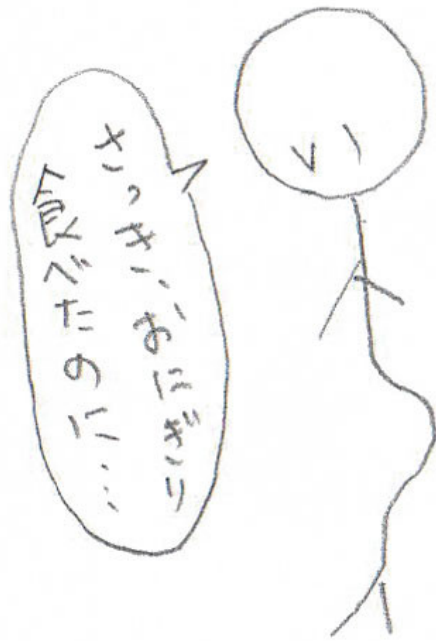 さっき、おにぎり
食べたのに…